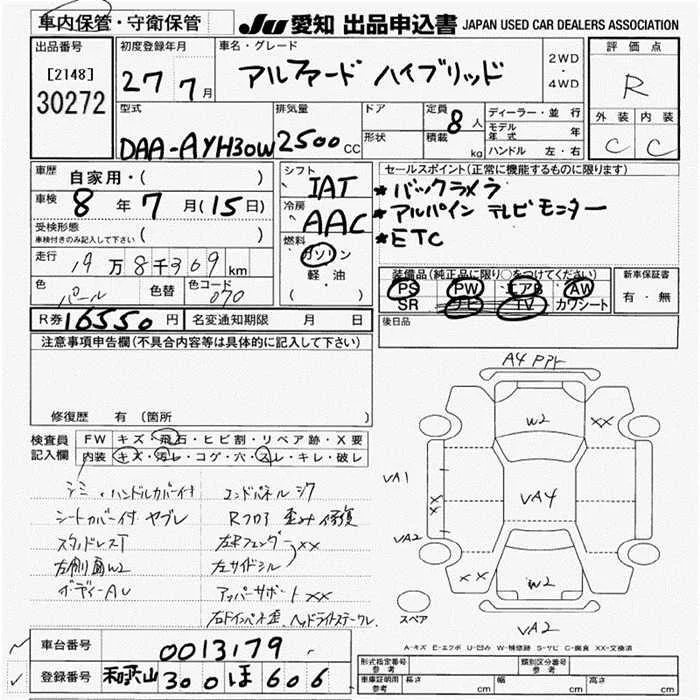 車内保管・守衛保管
JU 愛知 出品申込書 JAPAN USED CAR DEALERS ASSOCIATION
出品番号
[2148]
30272
初度登録年月
27 7月
車名・グレード
アルファード ハイブリッド
2WD
・
4WD
評価点
R
外装 内装
C C
型式
DAA-AYH30W
排気量
2500CC
ドア
形状
定員 8人
積載 kg
ディーラー・並行
モデル年式 年
ハンドル 左・右
車歴
自家用・( )
車検 8年7月(15日)
受検形態
車検付きのみ記入して下さい ( )
走行 19万8千369km
色 パール 色替 色コード 070
シフト IAT
冷房 AAC
燃料
ガソリン
軽油
( )
セールスポイント(正常に機能するものに限ります)
*バックカメラ
*アルパイン テレビモニター
*ETC
装備品(純正品に限り○をつけてください)
PS PW エアB AW
SR ナビ TV カワシート
新車保証書
有・無
後日品
R券 16550円 名変通知期限 月 日
注意事項申告欄(不具合内容等は具体的に記入して下さい)
修復歴 有(箇所 )
検査員記入欄
FW キズ・飛石・ヒビ割・リペア跡・X要
内装 キズ・汚レ・コゲ・穴・スレ・キレ・破レ
シミ・ハンドルカバー付
シートカバー付 ヤブレ
スタッドレスT
左側面W2
ボディーAU
エンドパネル ジワ
Rフロア 歪み 修復
左Rフェンダー
左サイドシル XX
アッパーサポートXX
右Fインパネ歪 ヘッドライトステークレ
A4 Pアト
W2
XX
VA1
XX
VA4
VA2
XX
W2
スペア
VA2
A-キズ E-エクボ U-凹み W-補修跡 S-サビ C-腐食 XX-交換済
車台番号 0013179
登録番号 和歌山 300 ほ 606
形式指定番号 参考
類別区分番号 参考
車庫証明用 参考 長さ cm 幅 cm 高さ cm